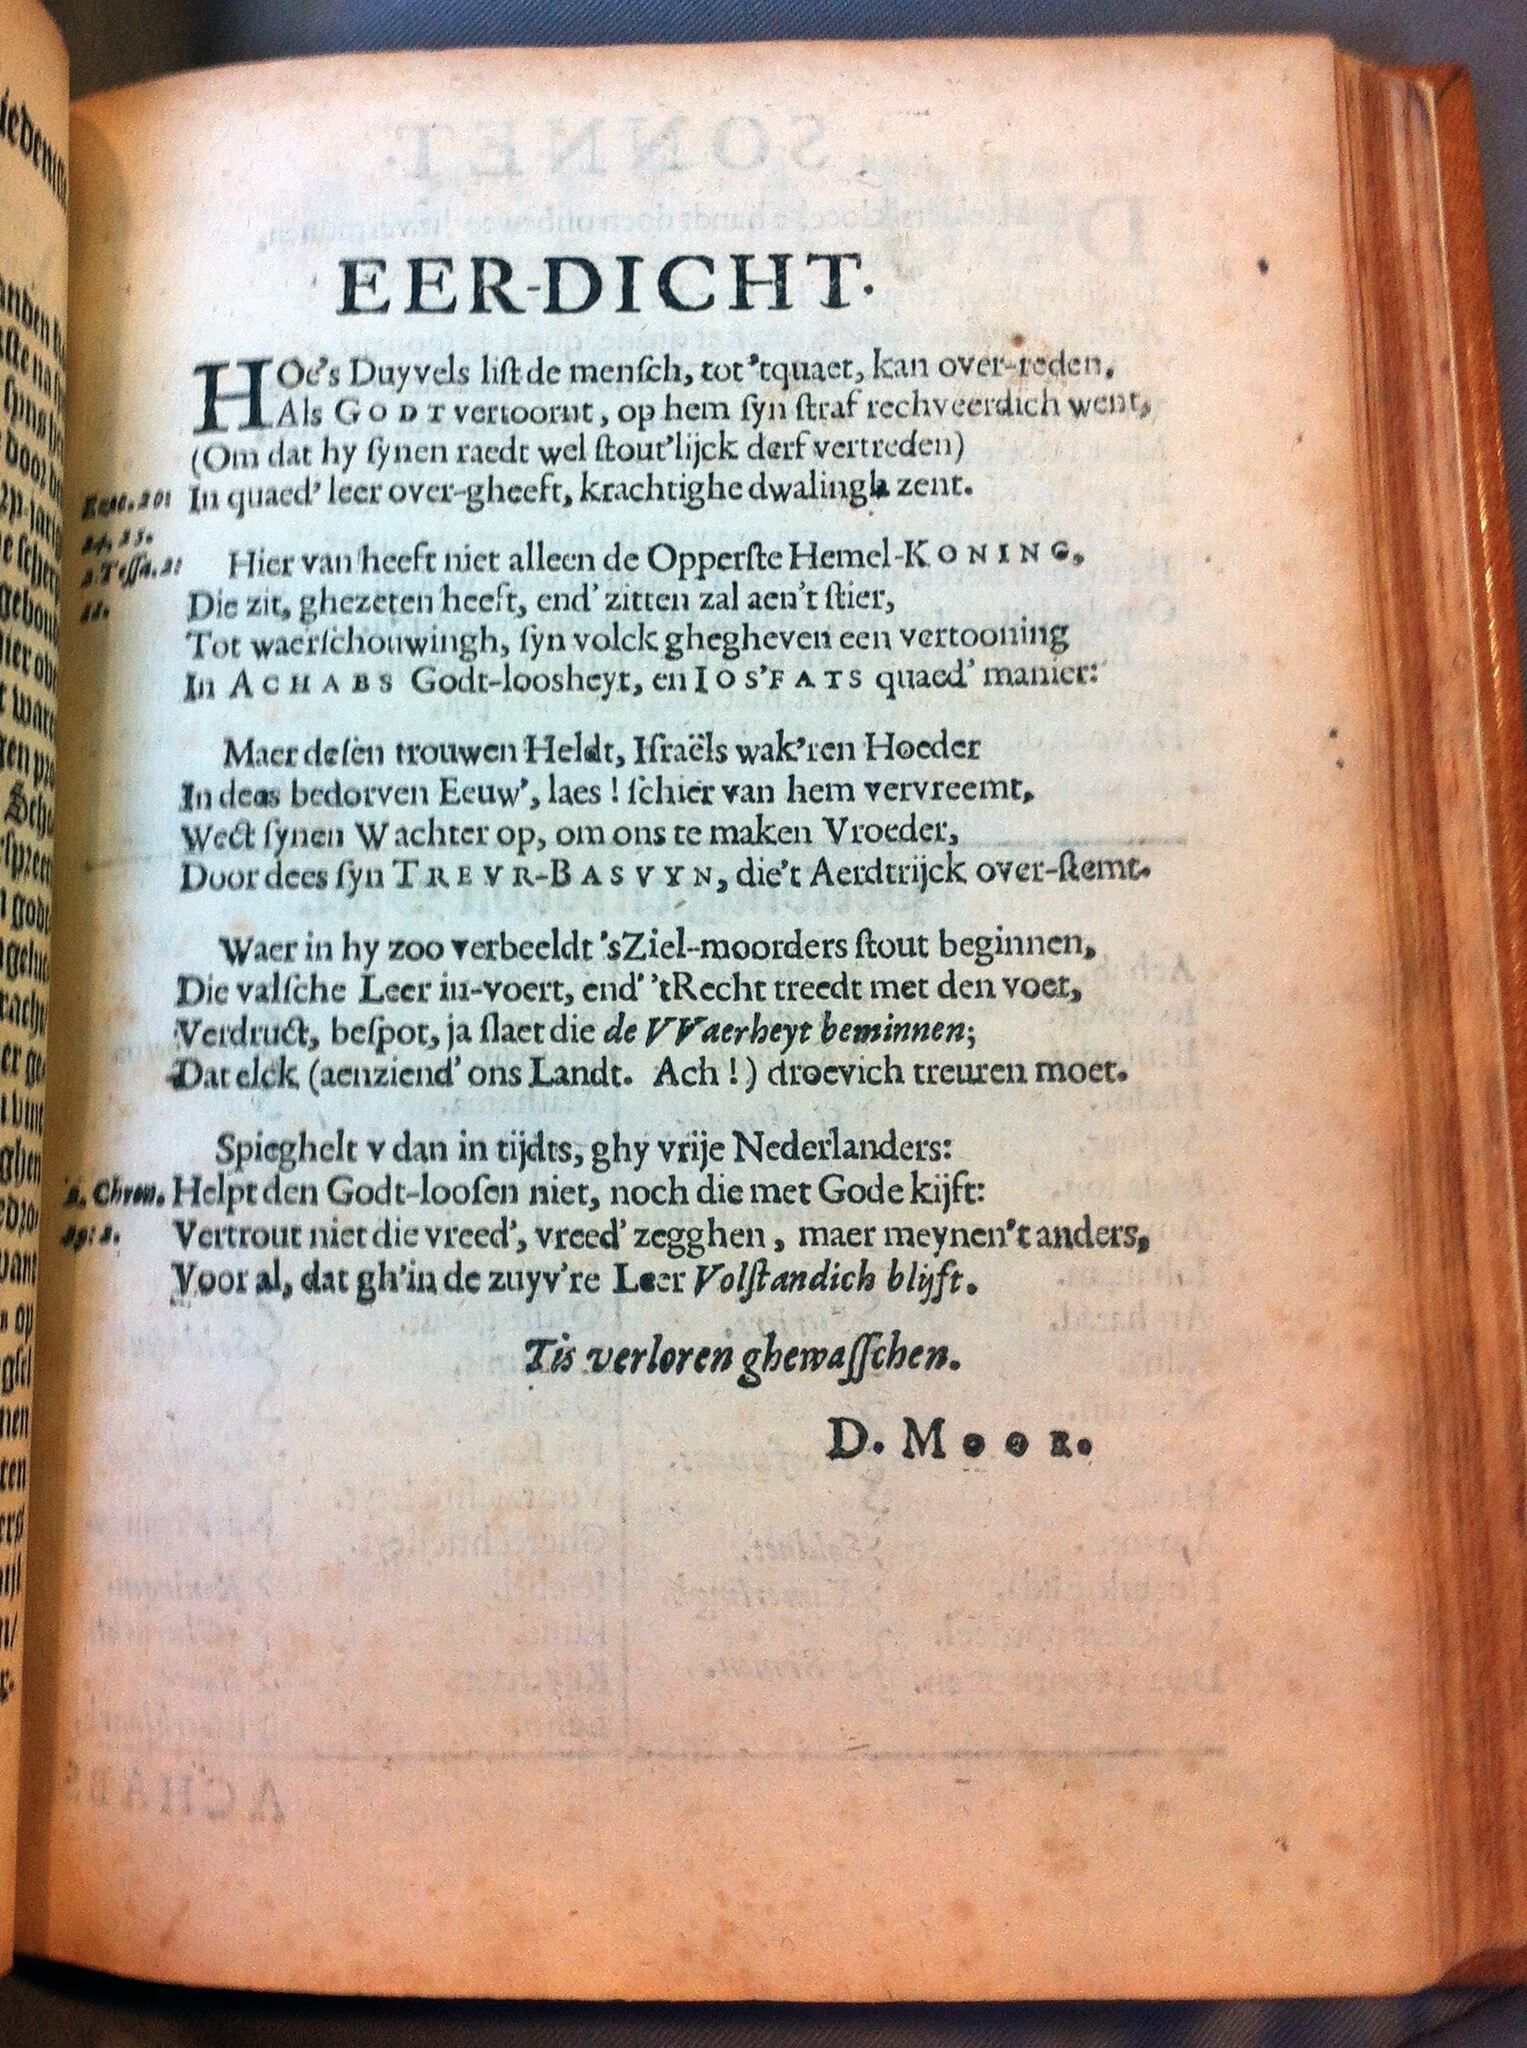 EER-DICHT.
HOe's Duyvels liſt de menſch, tot 'tquaet, kan over-reden.
Als GODT vertoornt, op hem ſyn ſtraf rechveerdich went,
(Om dat hy ſynen raedt wel ſtout'lijck derf vertreden)
In quaed' leer over-gheeft, krachtighe dwalingh zent.
Hier van heeft niet alleen de Opperſte Hemel-KONING,
2 Teſſa. 2:
11.
Die zit, ghezeten heeft, end' zitten zal aen't ſtier,
Tot waerſchouwingh, ſyn volck ghegheven een vertooning
In ACHABS Godt-loosheyt, en IOS'FATS quaed' manier:
Maer deſen trouwen Heldt, Iſraëls wak'ren Hoeder
In dees bedorven Eeuw', laes! ſchier van hem vervreemt,
Wect ſynen Wachter op, om ons te maken Vroeder,
Door dees ſyn TREVR-BASVYN, die't Aerdtrijck over-ſtemt.
Waer in hy zoo verbeeldt 'sZiel-moorders ſtout beginnen,
Die valſche Leer in-voert, end' 'tRecht treedt met den voet,
Verdruct, beſpot, ja ſlaet die de VVaerheyt beminnen;
Dat elck (aenziend' ons Landt. Ach!) droevich treuren moet.
Spieghelt v dan in tijdts, ghy vrije Nederlanders:
2. Chron. Helpt den Godt-looſen niet, noch die met Gode kijft:
19: 2. Vertrout niet die vreed', vreed' zegghen, maer meynen't anders,
Voor al, dat gh'in de zuyv're Leer Volſtandich blijft.
Tis verloren ghewaſſchen.
D. MOOR.